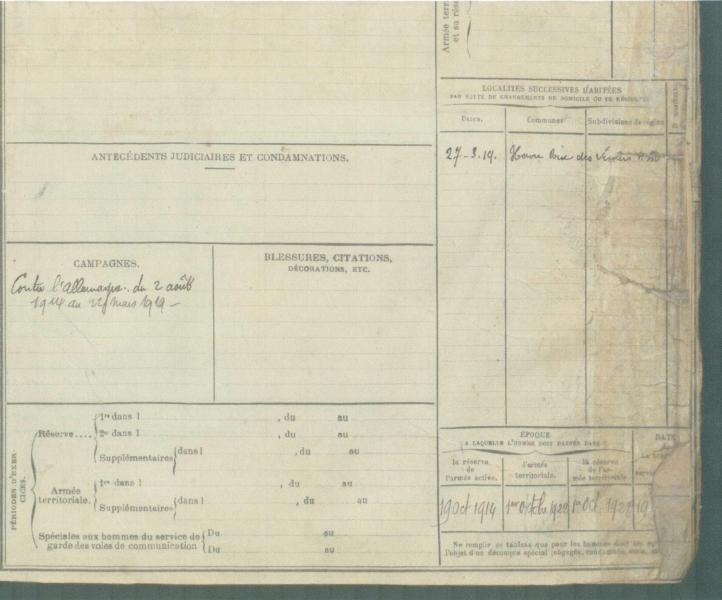 Armée terri
et sa rés
LOCALITÉS SUCCESSIVES HABITÉES
PAR SUITE DE CHANGEMENTS DE DOMICILE OU DE
Dates.
Communes
Subdivisions de région
27-3.19.
Havre
des
ANTÉCÉDENTS JUDICIAIRES ET CONDAMNATIONS.
CAMPAGNES.
Contre l'Allemagne. du 2 août
1914 au 22 mars 1919 —
BLESSURES, CITATIONS,
DÉCORATIONS, ETC.
PÉRIODES D'EXER-
CICES.
Réserve....
1re dans l , du au
2e dans l , du au
Supplémentaires dans l , du au
Armée
territoriale.
1re dans l , du au
Supplémentaires dans l , du au
Spéciales aux hommes du service de
garde des voies de communication
Du au
Du au
ÉPOQUE
À LAQUELLE L'HOMME DOIT PASSER DANS
DATE
la réserve
de
l'armée active.
l'armée
territoriale.
la réserve
de l'ar-
mée territoriale.
1 oct 1914
19
Ne remplir ce tableau que pour les hommes
l'objet d'un décompte spécial (engagés,